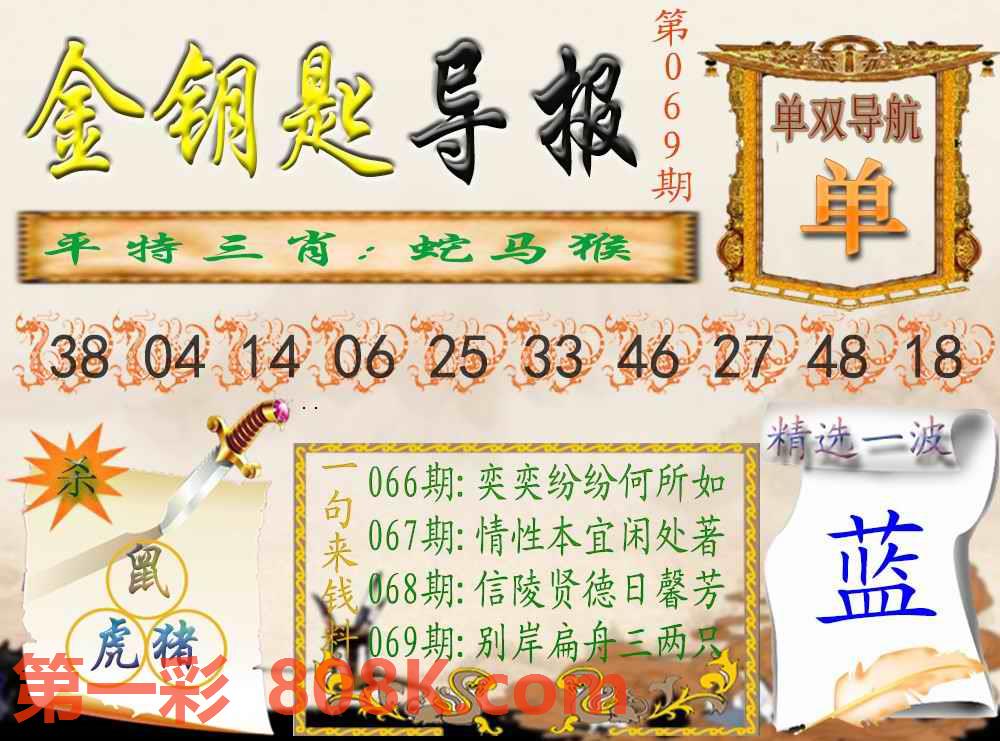 金钥匙导报
第069期
单双导航
单
平特三肖：蛇马猴
38 04 14 06 25 33 46 27 48 18
杀
鼠
虎 猪
一句来钱料
066期：奕奕纷纷何所如
067期：情性本宜闲处著
068期：信陵贤德日馨芳
069期：别岸扁舟三两只
精选一波
蓝
第一彩 808K.com